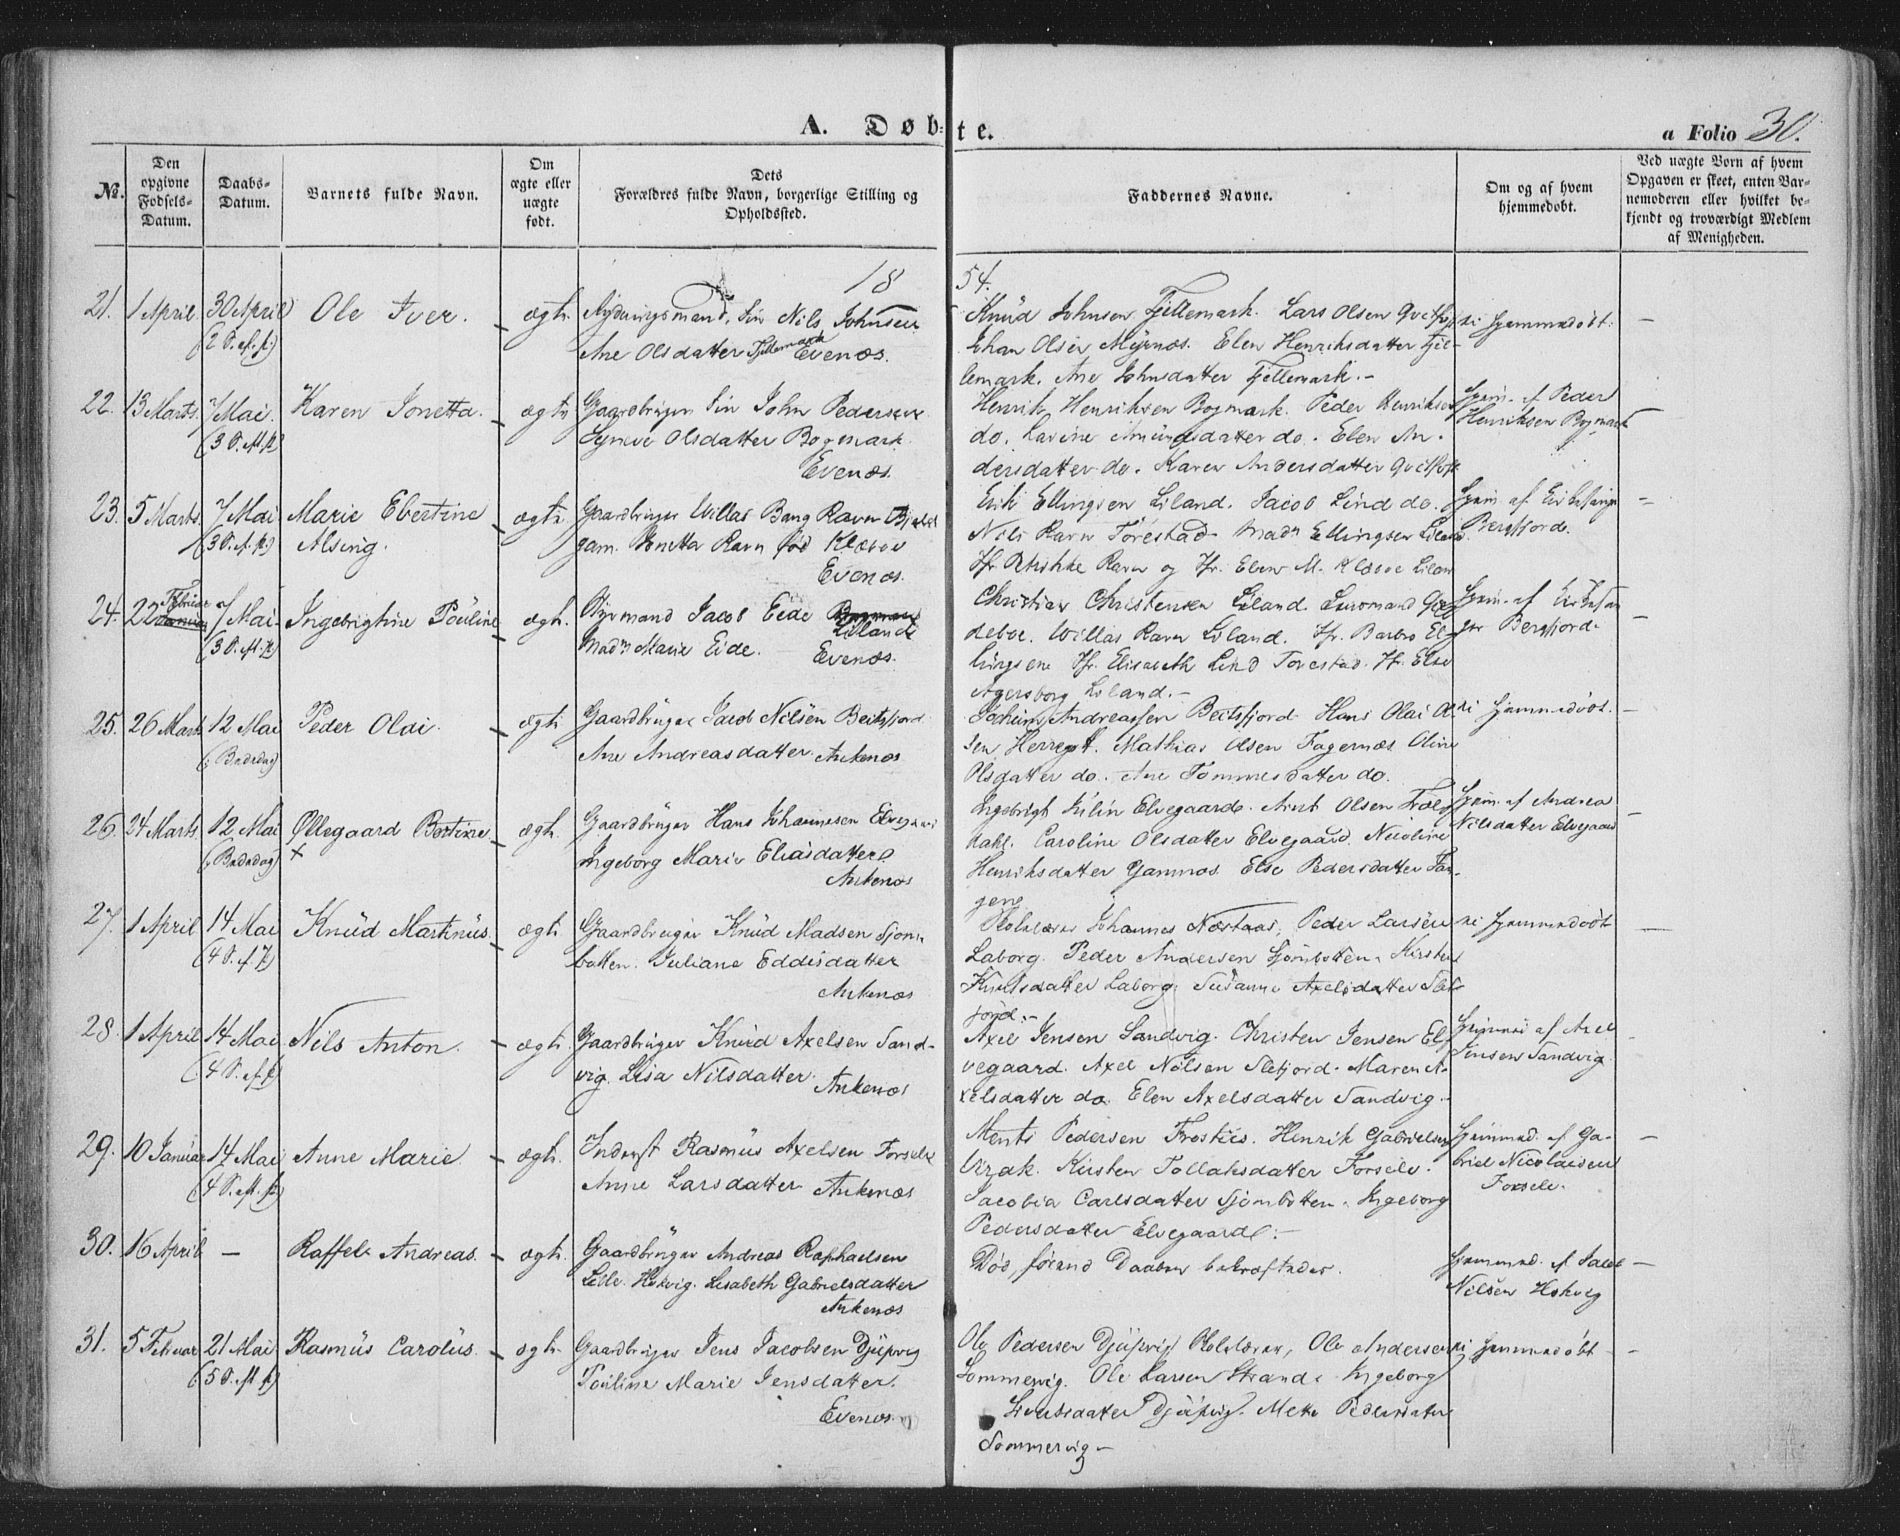 A. Døbte.
a Folio 30.
No.
Den opgivne Fødsels-Datum.
Daabs-Datum.
Barnets fulde Navn.
Om ægte eller uægte født.
Dets Forældres fulde Navn, borgerlige Stilling og Opholdssted.
Faddernes Navne.
Om og af hvem hjemmedøbt.
Ved uægte Børn af hvem Opgaven er skeet, enten Barnemoderen eller hvilket bekjendt og troværdigt Medlem af Menigheden.
1854.
21. 1 April 30 April Ole Iver. ægte Rydningsmand Nils Johnsen Knud Johnsen Fjellemark. Lars Olsen ei hjemmedøbt. —
(2 S. ef. p.) Ane Olsdatter Fjellemark Evenæs. Johan Olsen Myrnæs. Elen Henriksdatter Fjel-
lemark. Ane Johnsdatter Fjellemark. —
22. 13 Marts. 7 Mai. Karen Jonetta. ægte Gaardbruger John Pedersen Henrik Henriksen Bogmark. Peder Henriksen Hjem. af Peder
(3 S. eft. p.) Olsdatter Bogmark. do. Lavine Amundsdatter do. Elen An- Henriksen Bogmark
Evenæs. dersdatter do. Karen Andersdatter
23. 5 Marts. 7 Mai Marie Ebertine ægte Gaardbruger Willas Bang Ravn Erik Ellingsen Liland. Jacob Lind do. Hjem. af —
(3 S. ef. p.) Alsing. Jonetta Ravn fød Klæboe Nils Ravn Torestad. Mad. Ellingsen Liland. Bergfjord.
Evenæs. Jfr. Ravn og Jfr. Elen M. Klæboe Liland
24. 22 Februar 7 Mai Ingebrigtine Pauline ægte. Styrmand Jacob Eide Liland Christian Christensen Liland. Hjem. af —
(3 S. eft. p.) Mad. Marie Eide. Evenæs. Willas Ravn Liland. Jfr. Barbro El- Bergfjord.
lingsen. Jfr. Elisabeth Lind Torestad. Jfr. Else
Agersborg Liland. —
25. 26 Marts 12 Mai Peder Olai. ægte Gaardbruger Jacob Nilsen Beitsfjord Jochim Andreassen Beitsfjord. Hans Olai Ol- ei hjemmedøbt. —
(Bededag) Ane Andreasdatter Ankenæs sen Mathias Olsen Fagernæs. Oline
Olsdatter do. Ane Tommesdatter do.
26. 24 Marts. 12 Mai Øllegaard Bertine. ægte. Gaardbruger Hans Johannesen Elvegaard Ingebrigt Elvegaard. Arnt Olsen Hjem. af Andrea —
(Bededag) Ingeborg Marie Eliasdatter dahl. Caroline Olsdatter Elvegaard. Nicoline Nilsdatter Elvegaard
Ankenæs Henriksdatter Else Pedersdatter
27. 1 April 14 Mai Knud Martinus. ægte Gaardbruger Knud Madsen Sjom- Johannes Peder Larsen ei hjemmedøbt —
(4 S. ef. p.) botten. Juliane Eddisdatter Laborg. Peder Andersen Sjombotten. Kirsten
Ankenæs Knudsdatter Laborg. Susanne Axelsdatter Slet-
fjord. —
28. 1 April 14 Mai Nils Anton. ægte. Gaardbruger Knud Axelsen Sand- Axel Jensen Sandvig. Christen Jensen El- Hjemmed. af Axel —
(4 S. ef. p.) vig. Lisa Nilsdatter. Ankenæs vegaard. Axel Nilsen Sletfjord. Maren A- Jensen Sandvig.
xelsdatter do. Elen Axelsdatter Sandvig.
29. 10 Januar 14 Mai Anne Marie. ægte. Inderst Rasmus Axelsen Forsele Ments Pedersen Henrik Gabrielsen Hjemmed. af Ga- —
(4 S. eft. p.) Anne Larsdatter Ankenæs Kirsten Tollaksdatter Forsele. briel Nicolaisen
Jacobia Carlsdatter Sjombotten. Ingeborg Forsele.
Pedersdatter Elvegaard. —
30. 16 April — Raffel Andreas. ægte. Gaardbruger Andreas Raphaelsen Død, førend Daaben bekræftedes. Hjemmed. af —
Lille Hokvig. Lisabeth Gabrielsdatter Nilsen Hokvig
Ankenæs
31. 5 Februar 21 Mai Rasmus Carolus. ægte. Gaardbruger Jens Jacobsen Djupvig Ole Pedersen Djupvig Ole Andersen ei hjemmedøbt —
(5 S. eft. p.) Pauline Marie Jensdatter. Sommervig. Ole Larsen Strand. Ingeborg
Evenæs Djupvig. Mette Pedersdatter
Sommervig —